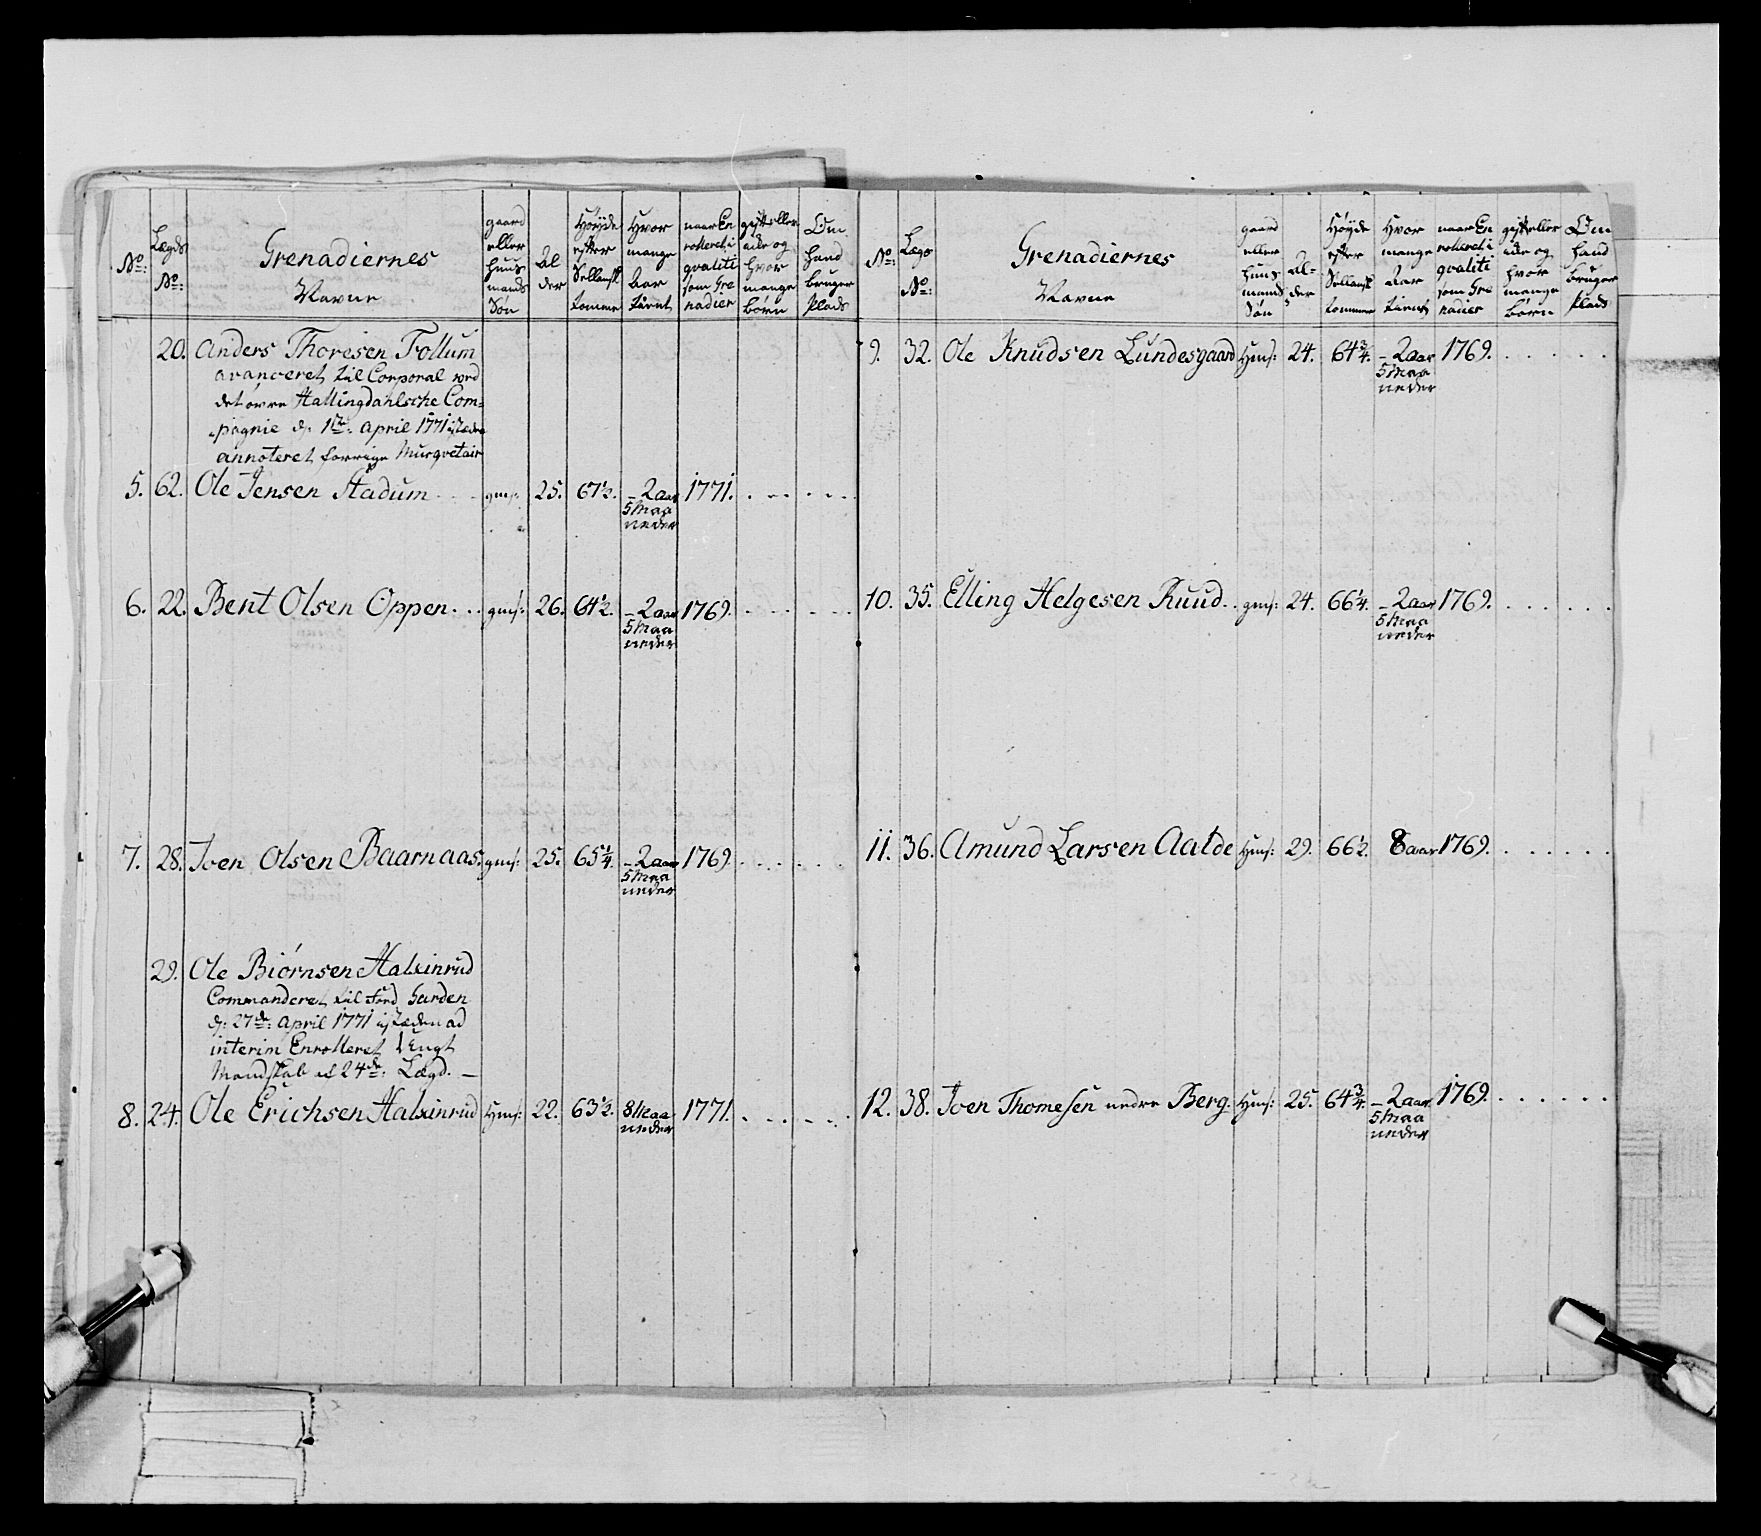 No: Lægds No: Grenadiernes Navne gaard eller huus mands Søn Al der Høyde efter Sellansk tomme Hvor mange Aar tient naar En rolleret i qvaliti som Gre nadier gift eller icke og hvor mange børn Om hand bruger Plads
20. Anders Thoresen Follum
avanceret til Corporal ved
det øvre Hallingdahlsche Com=
pagnie d: 1te: April 1771 isteden
annoteret forrige Musqvetair
5. 62. Ole Jensen Stadum gms: 25. 67½. - 2 aar 1771.
5 Maa
neder
6. 22. Bent Olsen Oppen gms: 26. 64½. - 2 aar 1769.
5 Maa
neder
7. 28. Joen Olsen Baarnaas. gms: 25. 65¼. - 2 aar 1769.
5 Maa
neder
29. Ole Biørnsen Halsinrud
Commanderet til Garden
d: 27de: April 1771 isteden ad
interim Enrolleret Ungt
Mandskab af 24de: Lægd. -
8. 24. Ole Erichsen Halsinrud Hms: 22. 63½. 8 Maa 1771.
neder
No: Lægs No: Grenadiernes Navne gaard eller huus mands Søn Al= der Høyde efter Sellansk tomme Hvor mange Aar tient naar En rolleret i qvaliti som Gre nadier gift eller icke og hvor mange børn Om hand bruger Plads
9. 32. Ole Knudsen Lundesgaard Hms: 24. 64¾. - 2 aar 1769.
5 Maa
neder
10. 35. Elling Helgesen Ruud gms: 24. 66¼. - 2 aar 1769.
5 Maa
neder
11. 36. Amund Larsen Aalde Hms: 29. 66½. 8 aar 1769.
12. 38. Joen Thomesen nedre Berg. Hms: 25. 64¾. - 2 aar 1769.
5 Maa
neder